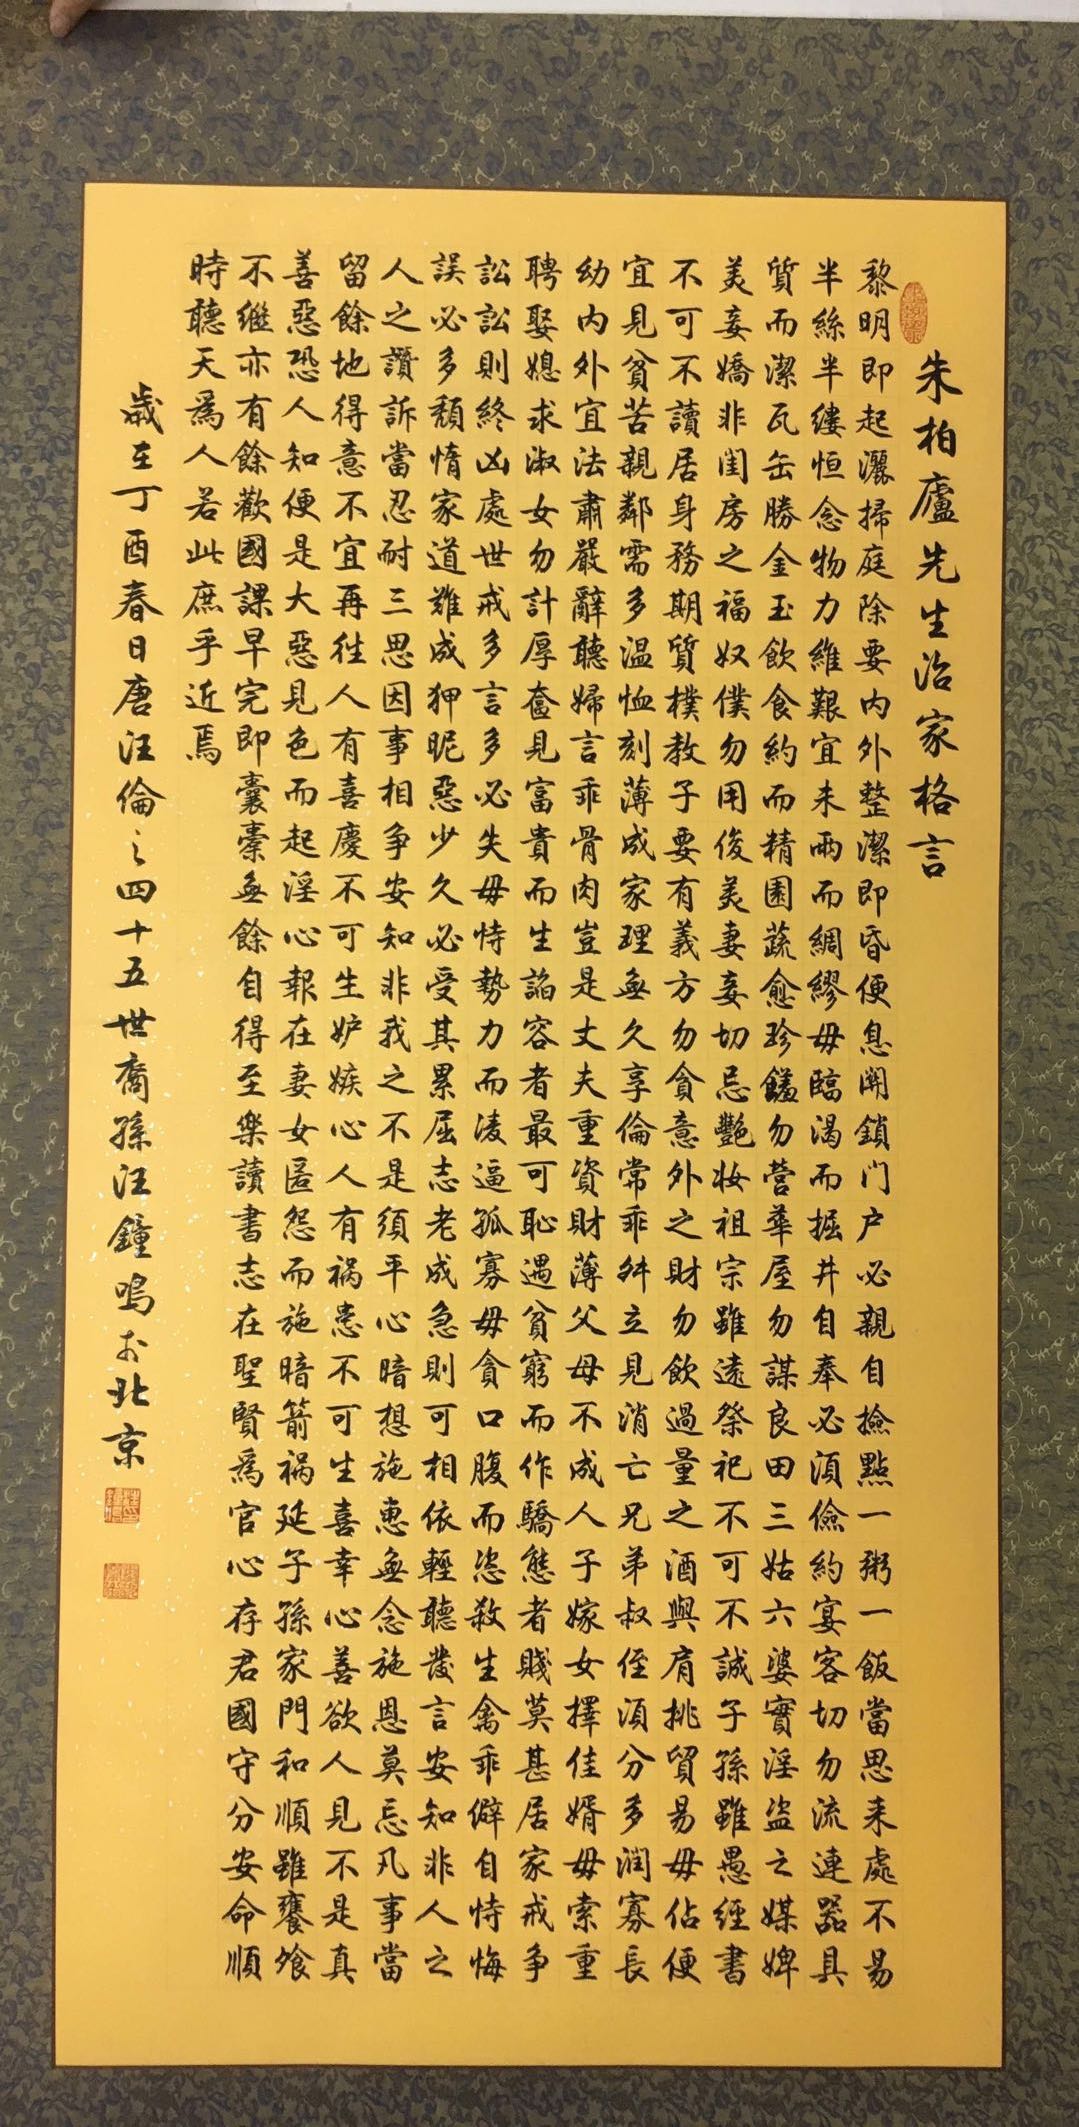 朱柏廬先生治家格言
黎明即起灑掃庭除要内外整潔即昏便息關鎖门户必親自撿點一粥一飯當思来處不易
半絲半縷恒念物力維艱宜未雨而綢繆毋臨渴而掘井自奉必須儉約宴客切勿流連器具
質而潔瓦缶勝金玉飲食約而精園蔬愈珍饈勿營華屋勿謀良田三姑六婆實淫盜之媒婢
美妾嬌非閨房之福奴僕勿用俊美妻妾切忌艷妝祖宗雖遠祭祀不可不誠子孫雖愚經書
不可不讀居身務期質樸教子要有義方勿貪意外之財勿飲過量之酒與肩挑貿易毋佔便
宜見貧苦親鄰需多温恤刻薄成家理無久享倫常乖舛立見消亡兄弟叔侄須分多潤寡長
幼内外宜法肅嚴辭聽婦言乖骨肉豈是丈夫重資財薄父母不成人子嫁女擇佳婿毋索重
聘娶媳求淑女勿計厚奩見富貴而生諂容者最可恥遇貧窮而作驕態者賤莫甚居家戒争
訟訟則終凶處世戒多言多必失毋恃勢力而淩逼孤寡毋貪口腹而恣殺生禽乖僻自恃悔
誤必多頹惰家道難成狎昵惡少久必受其累屈志老成急則可相依輕聽發言安知非人之
人之譖訴當忍耐三思因事相争安知非我之不是須平心暗想施惠無念施恩莫忘凡事當
留餘地得意不宜再往人有喜慶不可生妒嫉心人有禍患不可生喜幸心善欲人見不是真
善惡恐人知便是大惡見色而起淫心報在妻女匿怨而施暗箭禍延子孫家門和順雖饔飧
不繼亦有餘歡國課早完即囊橐無餘自得至樂讀書志在聖賢爲官心存君國守分安命順
時聽天爲人若此庶乎近焉
歲在丁酉春日唐汪倫之四十五世裔孫汪鐘鳴於北京